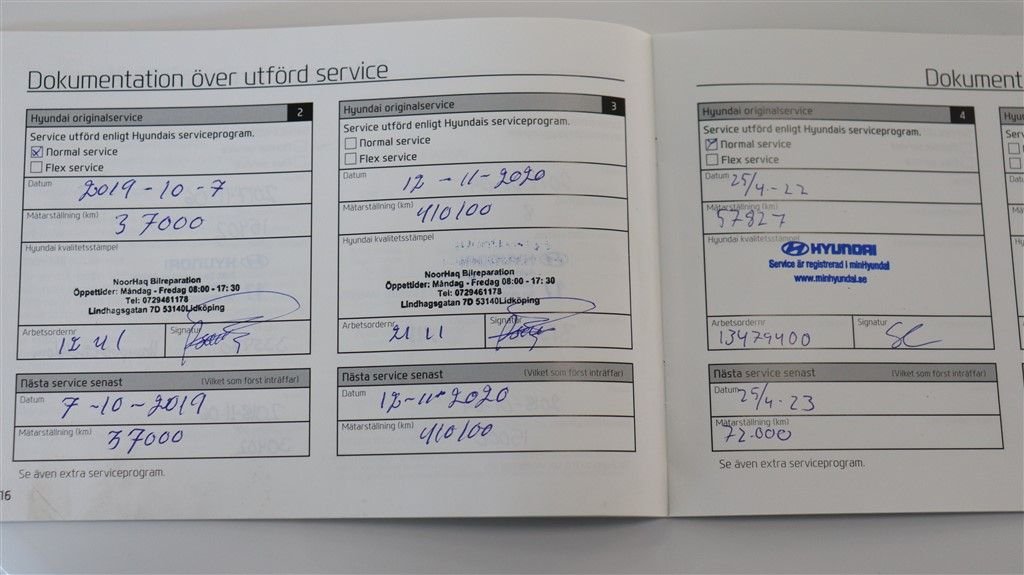 Dokumentation över utförd service
Hyundai originalservice 2
Service utförd enligt Hyundais serviceprogram.
Normal service
Flex service
Datum
2019-10-7
Mätarställning (km)
37000
Hyundai kvalitetsstämpel
NoorHaq Bilreparation
Öppettider: Måndag - Fredag 08:00 - 17: 30
Tel: 0729461178
Lindhagsgatan 7D 53140Lidköping
Arbetsordernr
Signatur
Nästa service senast (Vilket som först inträffar)
Datum
7-10-2019
Mätarställning (km)
37000
Se även extra serviceprogram.
16
Hyundai originalservice 3
Service utförd enligt Hyundais serviceprogram.
Normal service
Flex service
Datum
12-11-2020
Mätarställning (km)
410100
Hyundai kvalitetsstämpel
NoorHaq Bilreparation
Öppettider: Måndag - Fredag 08:00 - 17: 30
Tel: 0729461178
Lindhagsgatan 7D 53140Lidköping
Arbetsordernr
Signatur
Nästa service senast (Vilket som först inträffar)
Datum
12-11-2020
Mätarställning (km)
410100
Se även extra serviceprogram.
Dokument
Hyundai originalservice 4
Service utförd enligt Hyundais serviceprogram.
Normal service
Flex service
Datum
25/4-22
Mätarställning (km)
57827
Hyundai kvalitetsstämpel
HYUNDAI
Service är registrerad i minHyundai
www.minhyundai.se
Arbetsordernr
13479400
Signatur
Nästa service senast (Vilket som först inträffar)
Datum
25/4-23
Mätarställning (km)
72.000
Se även extra serviceprogram.